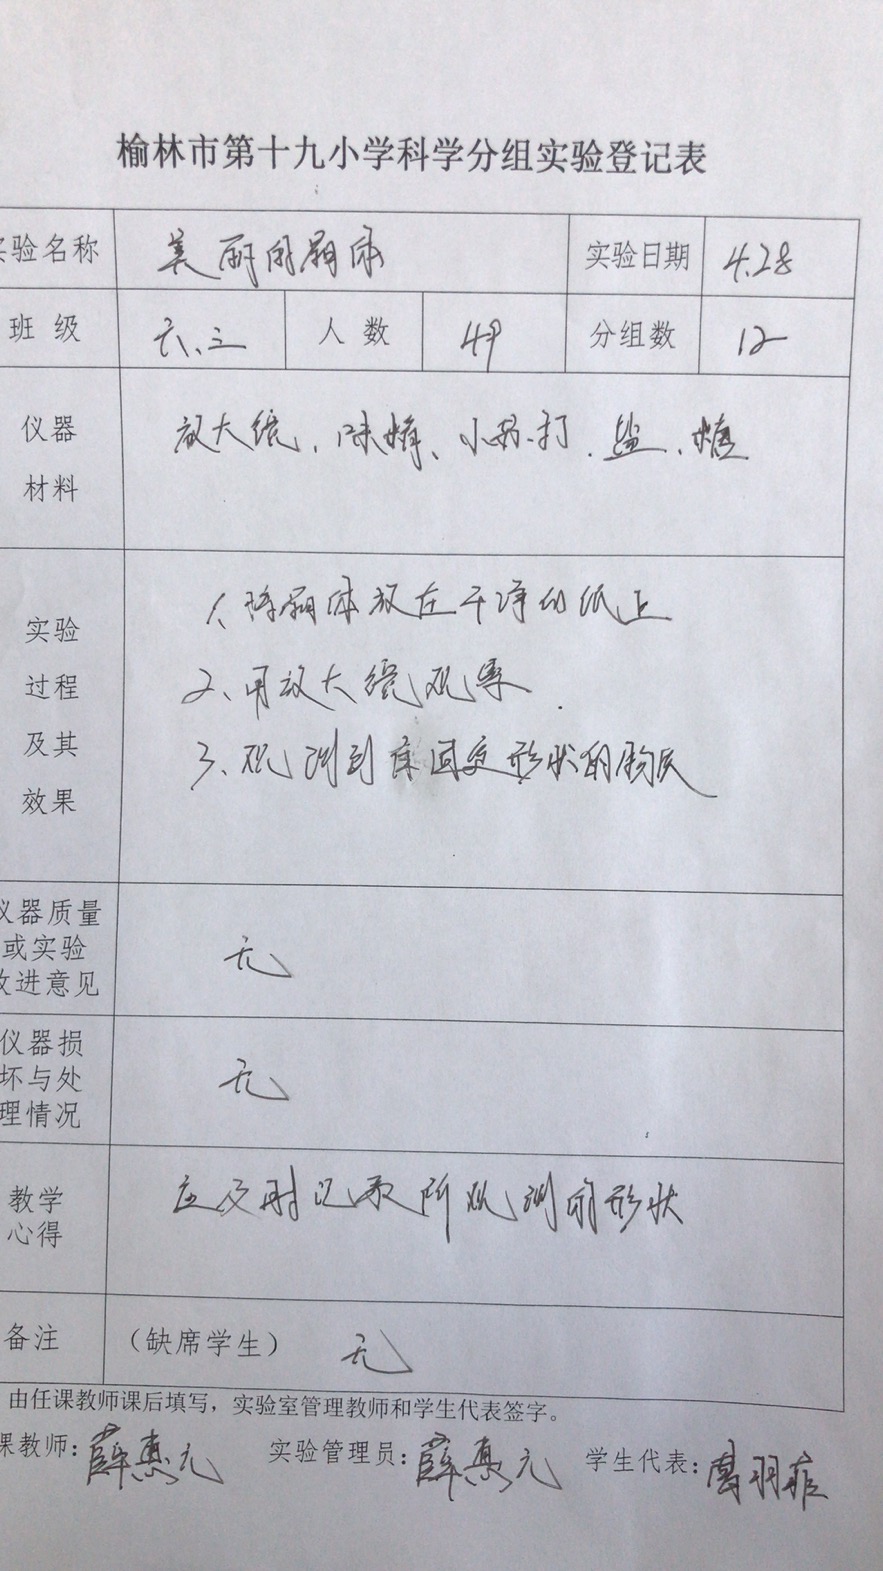 榆林市第十九小学科学分组实验登记表
实验名称 美丽的晶体 实验日期 4.28
班级 六.三 人数 49 分组数 12
仪器材料 放大镜、味精、小苏打、盐、糖
实验过程及其效果
1、将晶体放在干净的纸上
2、用放大镜观察
3、观测到有固定形状的物质
仪器质量或实验改进意见 无
仪器损坏与处理情况 无
教学心得 应及时记录所观测的形状
备注 (缺席学生) 无
由任课教师课后填写,实验室管理教师和学生代表签字。
课教师:薛惠元 实验管理员:薛惠元 学生代表:羽菲